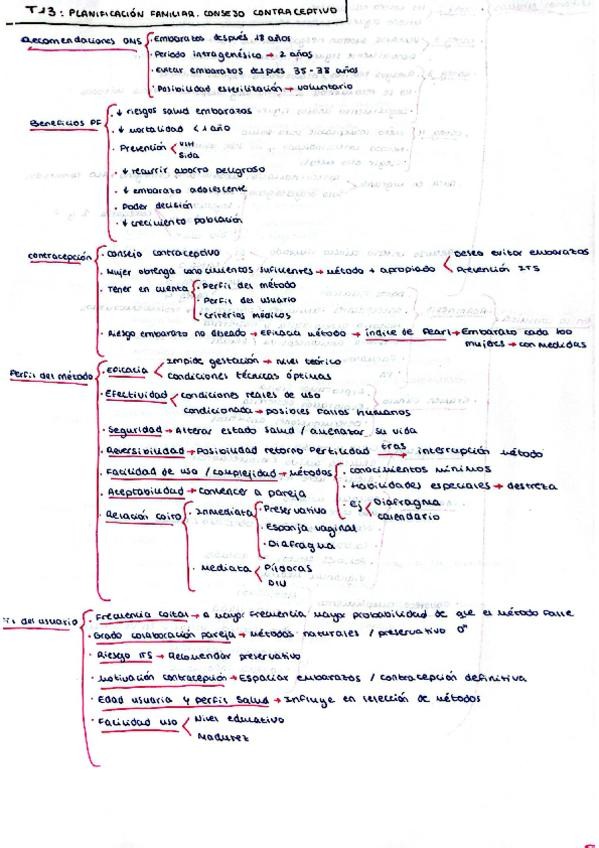 T13: PLANIFICACIÓN FAMILIAR. CONSEJO CONTRACEPTIVO
Recomendaciones OMS
· Embarazos después 18 años
· Periodo intragenésico → 2 años
· Evitar embarazos después 35-38 años
· Posibilidad esterilización → voluntario
Beneficios PF
· ↓ riesgos salud embarazos
· ↓ mortalidad < 1 año
· Prevención < VIH
Sida
· ↓ recurrir aborto peligroso
· ↓ embarazo adolescente
· Poder decisión
· ↓ crecimiento población
Contracepción
· Consejo contraceptivo
· Mujer obtenga conocimientos suficientes → método + apropiado < Deseo evitar embarazos
Prevención ITS
· Tener en cuenta
· Perfil del método
· Perfil del usuario
· Criterios médicos
· Riesgo embarazo no deseado → Eficacia método → índice de Pearl → Embarazo cada 100
mujeres → con medidas
Perfil del método
· Eficacia < Impide gestación → nivel teórico
condiciones técnicas óptimas
· Efectividad < condiciones reales de uso
condicionada → posibles fallos humanos
· Seguridad → Alterar estado salud / amenazar su vida
· Reversibilidad → Posibilidad retorno fertilidad tras → interrupción método
· Facilidad de uso / complejidad → métodos
· conocimientos mínimos
· Habilidades especiales → destreza
· ej < Diafragma
calendario
· Aceptabilidad → convencer a pareja
· Relación coito
· Inmediata
· Preservativo
· Esponja vaginal
· Diafragma
· Mediata < Píldoras
DIU
del usuario
· Frecuencia coital → a mayor frecuencia mayor probabilidad de que el método falle
· Grado colaboración pareja → métodos naturales / preservativo
· Riesgo ITS → Recomendar preservativo
· Motivación contracepción → Espaciar embarazos / contracepción definitiva
· Edad usuaria y perfil salud → Influye en selección de métodos
· Facilidad uso < Nivel educativo
Madurez